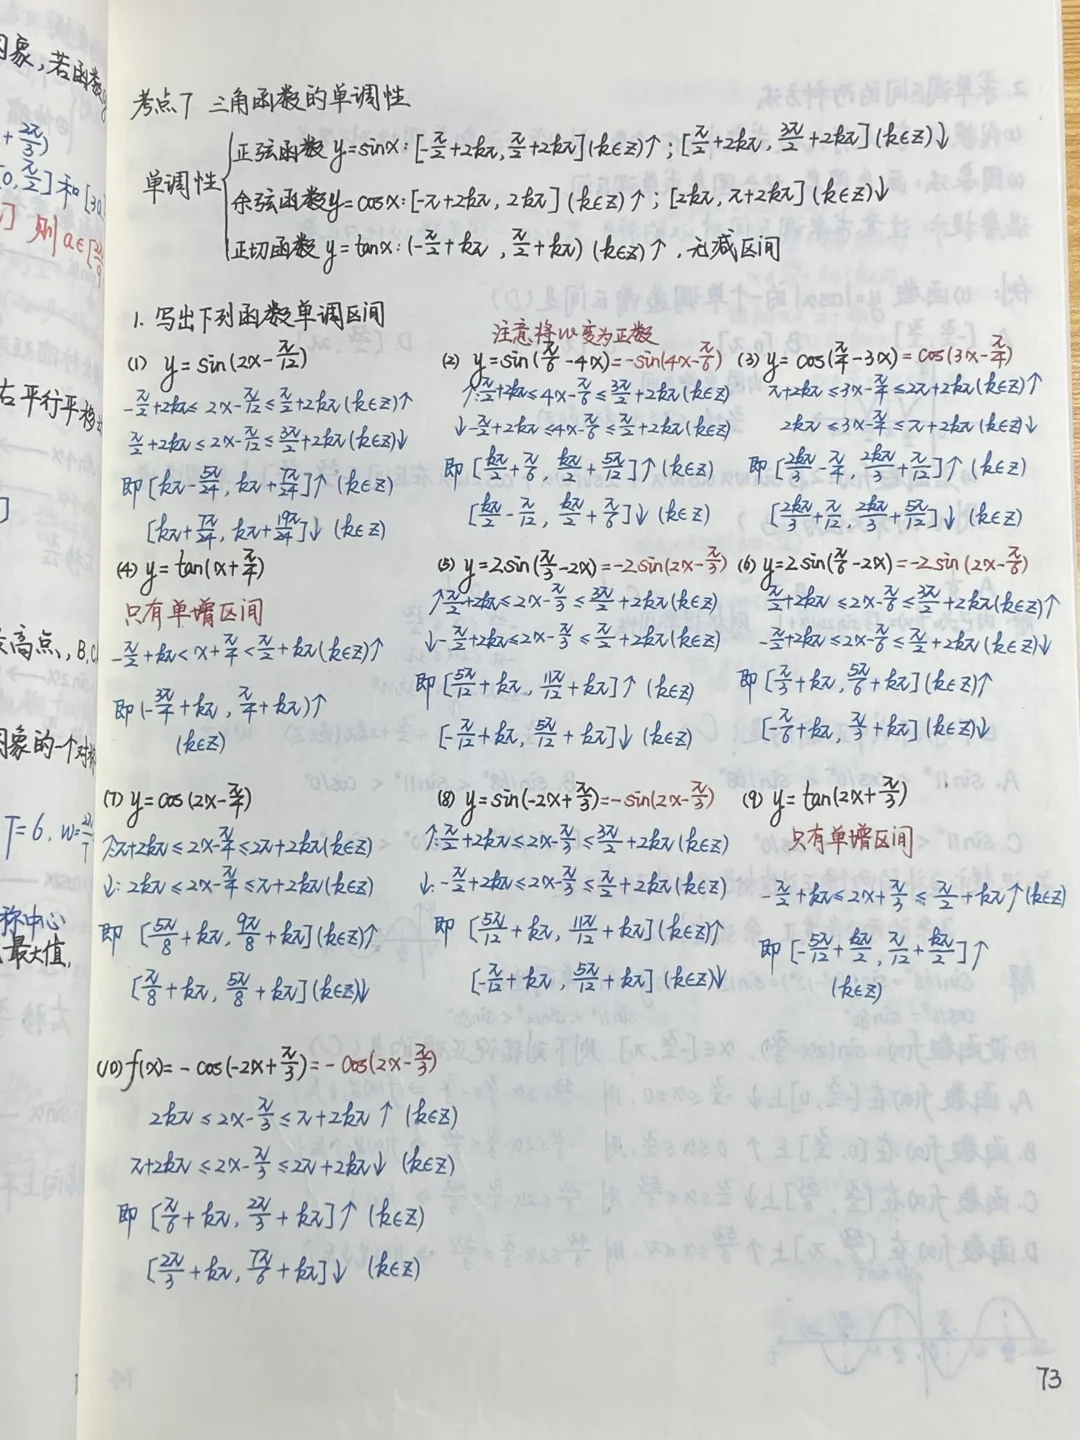 考点7 三角函数的单调性
单调性
正弦函数 y=sinx: [-π/2+2kπ, π/2+2kπ] (k∈Z)↑; [π/2+2kπ, 3π/2+2kπ] (k∈Z)↓
余弦函数 y=cosx: [-π+2kπ, 2kπ] (k∈Z)↑; [2kπ, π+2kπ] (k∈Z)↓
正切函数 y=tanx: (-π/2+kπ, π/2+kπ) (k∈Z)↑, 无减区间
1. 写出下列函数单调区间
(1) y=sin(2x-π/12)
-π/2+2kπ≤2x-π/12≤π/2+2kπ(k∈Z)↑
π/2+2kπ≤2x-π/12≤3π/2+2kπ(k∈Z)↓
即[kπ-5π/24, kπ+7π/24]↑(k∈Z)
[kπ+7π/24, kπ+19π/24]↓(k∈Z)
注意将w变为正数
(2) y=sin(π/6-4x)=-sin(4x-π/6)
↑:π/2+2kπ≤4x-π/6≤3π/2+2kπ(k∈Z)
↓-π/2+2kπ≤4x-π/6≤π/2+2kπ(k∈Z)
即[kπ/2+π/6, kπ/2+5π/12]↑(k∈Z)
[kπ/2-π/12, kπ/2+π/6]↓(k∈Z)
(3) y=cos(π/4-3x)=cos(3x-π/4)
π+2kπ≤3x-π/4≤2π+2kπ(k∈Z)↑
2kπ≤3x-π/4≤π+2kπ(k∈Z)↓
即[2kπ/3-π/4, 2kπ/3+π/12]↑(k∈Z)
[2kπ/3+π/12, 2kπ/3+5π/12]↓(k∈Z)
(4) y=tan(x+π/4)
只有单增区间
-π/2+kπ<x+π/4<π/2+kπ(k∈Z)↑
即(-3π/4+kπ, π/4+kπ)↑
(k∈Z)
(5) y=2sin(π/3-2x)=-2sin(2x-π/3)
↑π/2+2kπ≤2x-π/3≤3π/2+2kπ(k∈Z)
↓-π/2+2kπ≤2x-π/3≤π/2+2kπ(k∈Z)
即[5π/12+kπ, 11π/12+kπ]↑(k∈Z)
[-π/12+kπ, 5π/12+kπ]↓(k∈Z)
(6) y=2sin(π/6-2x)=-2sin(2x-π/6)
π/2+2kπ≤2x-π/6≤3π/2+2kπ(k∈Z)↑
-π/2+2kπ≤2x-π/6≤π/2+2kπ(k∈Z)↓
即[π/3+kπ, 5π/6+kπ](k∈Z)↑
[-π/6+kπ, π/3+kπ](k∈Z)↓
(7) y=cos(2x-π/4)
↑:π+2kπ≤2x-π/4≤2π+2kπ(k∈Z)
↓:2kπ≤2x-π/4≤π+2kπ(k∈Z)
即 [5π/8+kπ, 9π/8+kπ](k∈Z)↑
[π/8+kπ, 5π/8+kπ](k∈Z)↓
(8) y=sin(-2x+π/3)=-sin(2x-π/3)
↑:π/2+2kπ≤2x-π/3≤3π/2+2kπ(k∈Z)
↓:-π/2+2kπ≤2x-π/3≤π/2+2kπ(k∈Z)
即 [5π/12+kπ, 11π/12+kπ](k∈Z)↑
[-π/12+kπ, 5π/12+kπ](k∈Z)↓
(9) y=tan(2x+π/3)
只有单增区间
-π/2+kπ≤2x+π/3≤π/2+kπ↑(k∈Z)
即[-5π/12+kπ/2, π/12+kπ/2]↑
(k∈Z)
(10) f(x)=-cos(-2x+π/3)=-cos(2x-π/3)
2kπ≤2x-π/3≤π+2kπ↑(k∈Z)
π+2kπ≤2x-π/3≤2π+2kπ↓(k∈Z)
即[π/6+kπ, 2π/3+kπ]↑(k∈Z)
[2π/3+kπ, 7π/6+kπ]↓(k∈Z)
73